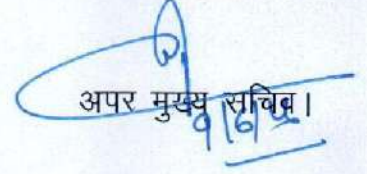 अपर मुख्य सचिव।